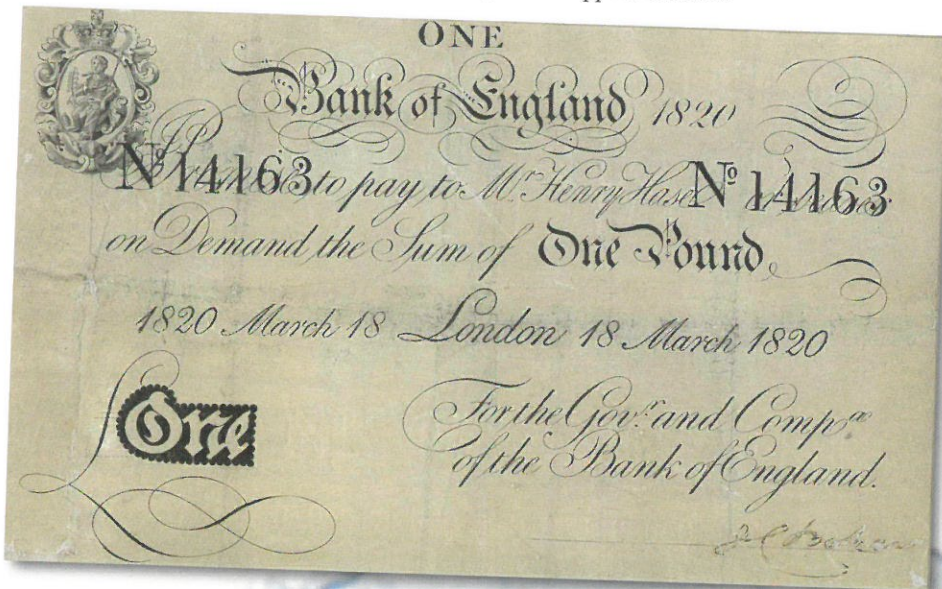 ONE
Bank of England 1820
Nº 14163 to pay to Mr. Henry Hase Nº 14163
on Demand the Sum of One Pound
1820 March 18 London 18 March 1820
One
For the Govr. and Compa.
of the Bank of England.